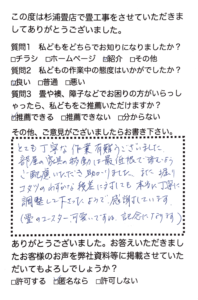 この度は杉浦畳店で畳工事をさせていただきまし
てありがとうございました。
質問1 私どもをどちらでお知りになりましたか？
□チラシ □ホームページ □紹介 □その他
質問2 私どもの作業中の態度はいかがでしたか？
□良い □普通 □悪い
質問3 畳や襖、障子などでお困りの方がいらっし
ゃったら、私どもをご推薦いただけますか？
□推薦できる □推薦できない □分からない
その他、ご意見がございましたらお書き下さい。
とても丁寧な作業有難うございました
部屋の家具の移動は最低限で済むよう
ご配慮いただき助かりました。また堀り
コタツのわずかな段差にまでも本当に丁寧に
調整して下さいましてありがとう感謝しています。
(畳のコースター可愛いですね。記念になりそうです)
ありがとうございました。お答えいただきまし
たお客様のお声を弊社資料等に掲載させていた
だいてもよろしでしょうか？
□許可する □匿名なら □許可しない